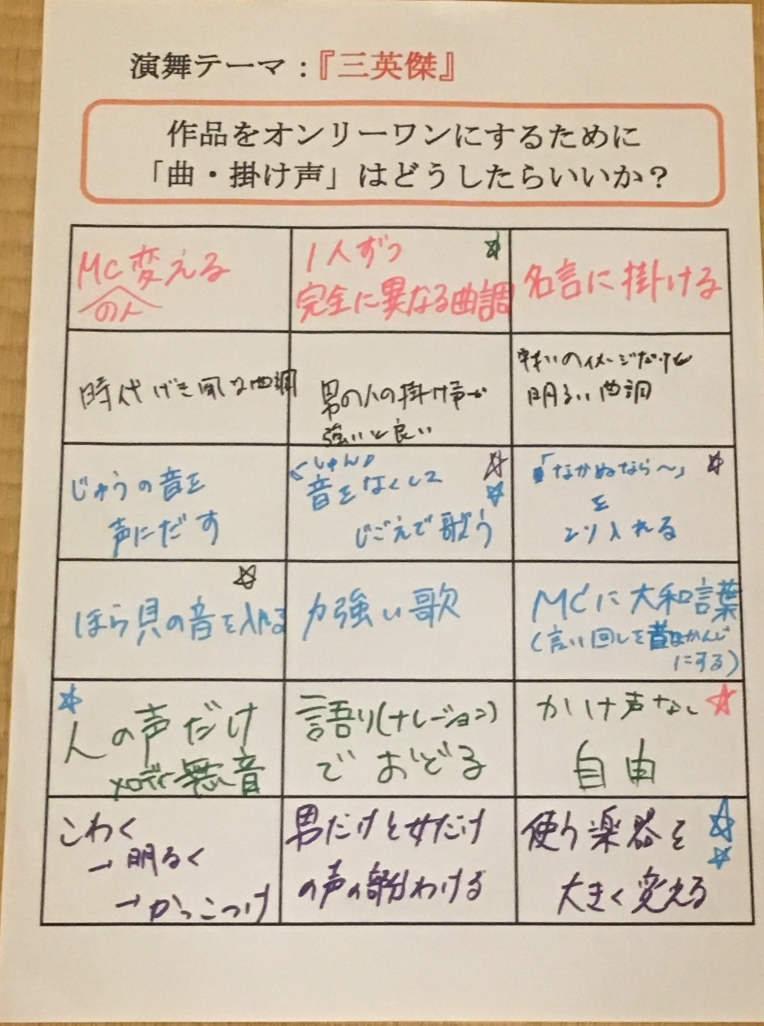 演舞テーマ：『三英傑』
作品をオンリーワンにするために
「曲・掛け声」はどうしたらいいか？
MC変える
の人
1人ずつ
完全に異なる曲調
名言に掛ける
時代げき風な曲調
男の人の掛け声が
強いと良い
戦いのイメージだけど
明るい曲調
じゅうの音を
声にだす
「しゅん」
音をなくして
じごえで歌う
「なかぬなら〜」
を
とり入れる
ほら貝の音を入れる
力強い歌
MCに大和言葉
(言い回しを昔なかんじ
にする)
人の声だけ
メロディ無音
語り(ナレーション)
でおどる
かけ声なし
自由
こわく
→明るく
→かっこつけ
男だけと女だけ
の声の部分わける
使う楽器を
大きく変える